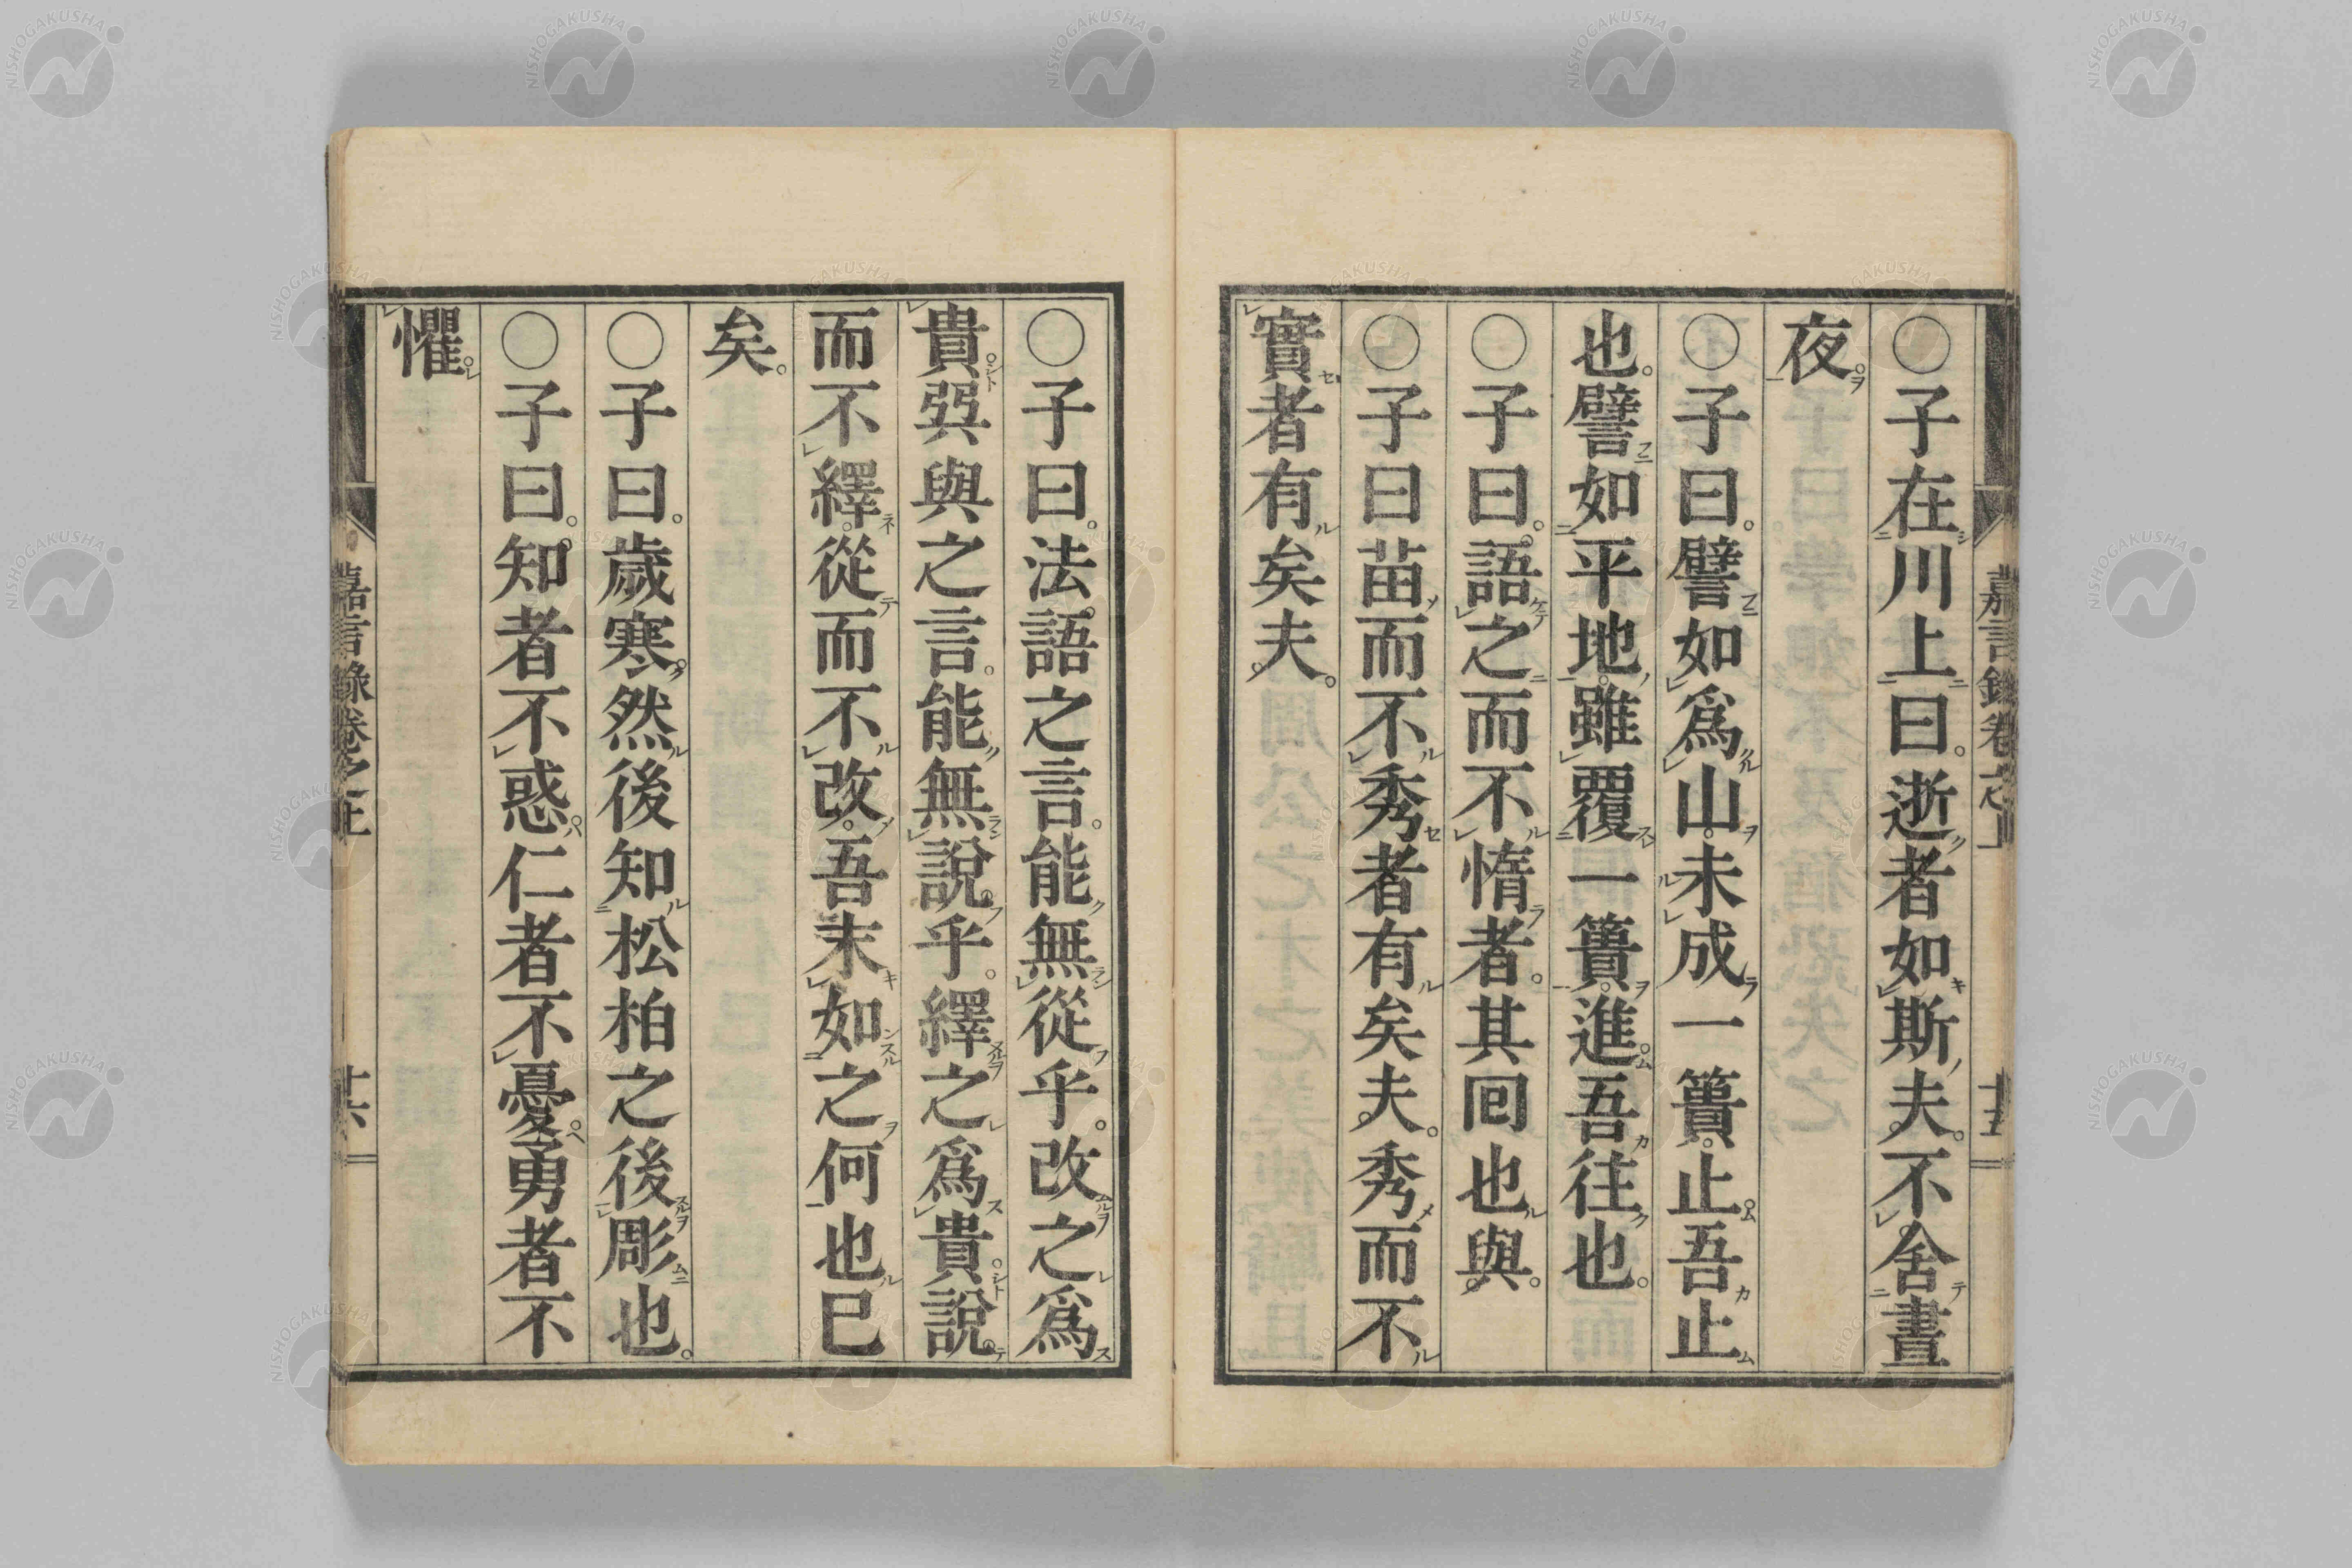 〇子在川上曰。逝者如斯夫。不舍晝
夜。
〇子曰。譬如爲山。未成一簣。止。吾止
也。譬如平地。雖覆一簣。進。吾往也。
〇子曰。語之而不惰者。其囘也與。
〇子曰苗而不秀者有矣夫。秀而不
實者有矣夫。
嘉言録卷之上
十五
〇子曰。法語之言。能無從乎。改之爲
貴。巽與之言。能無說乎。繹之爲貴。說
而不繹。從而不改。吾末如之何也巳
矣。
〇子曰。歲寒。然後知松柏之後彫也。
〇子曰。知者不惑。仁者不憂。勇者不
懼。
嘉言錄卷之上
十六
NISHOGAKUSHA